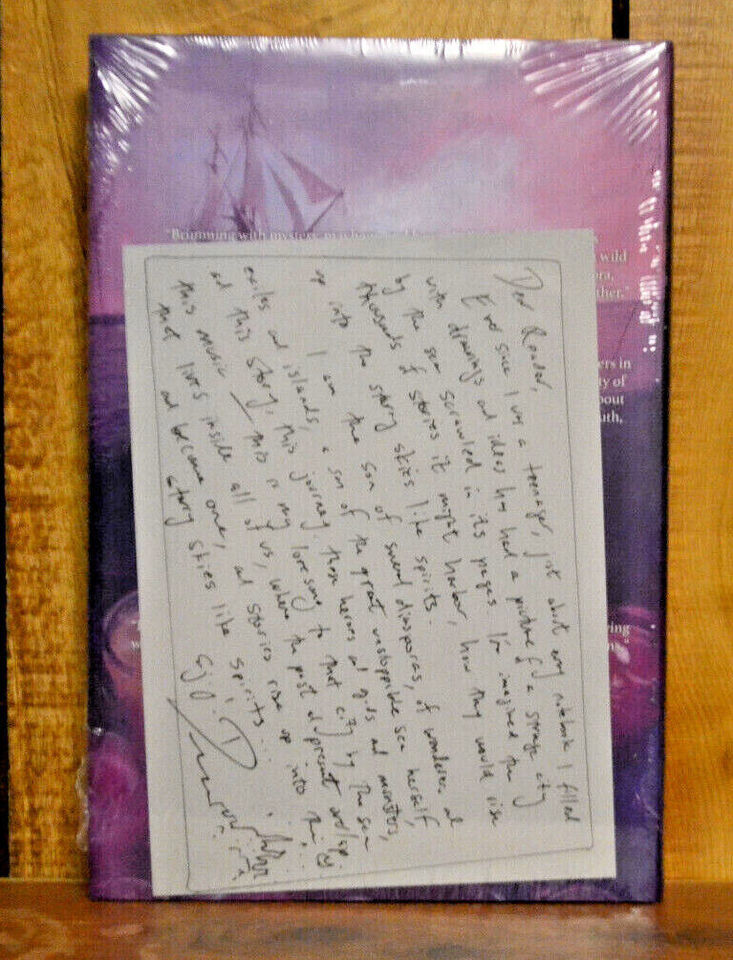 "Brimming with mystery,
wild
ther."
ers in
ty of
bout
uth,
Dear Reader,
Ever since I was a teenager, just about every notebook I filled
with drawings and ideas has had a picture of a strange city
by the sea scrawled in its pages. I've imagined the
thousands of stories it might harbor, how they would rise
up into the starry skies like spirits.
I am the son of several diasporas, of wanderers and
exiles and islands, a son of the great unstoppable sea herself,
and this story, this journey, these heroes and gods and monsters,
this music — this is my lovesong to that city by the sea
that lives inside all of us, where the past and present overlap
and become one, and stories rise up into the
starry skies like spirits...